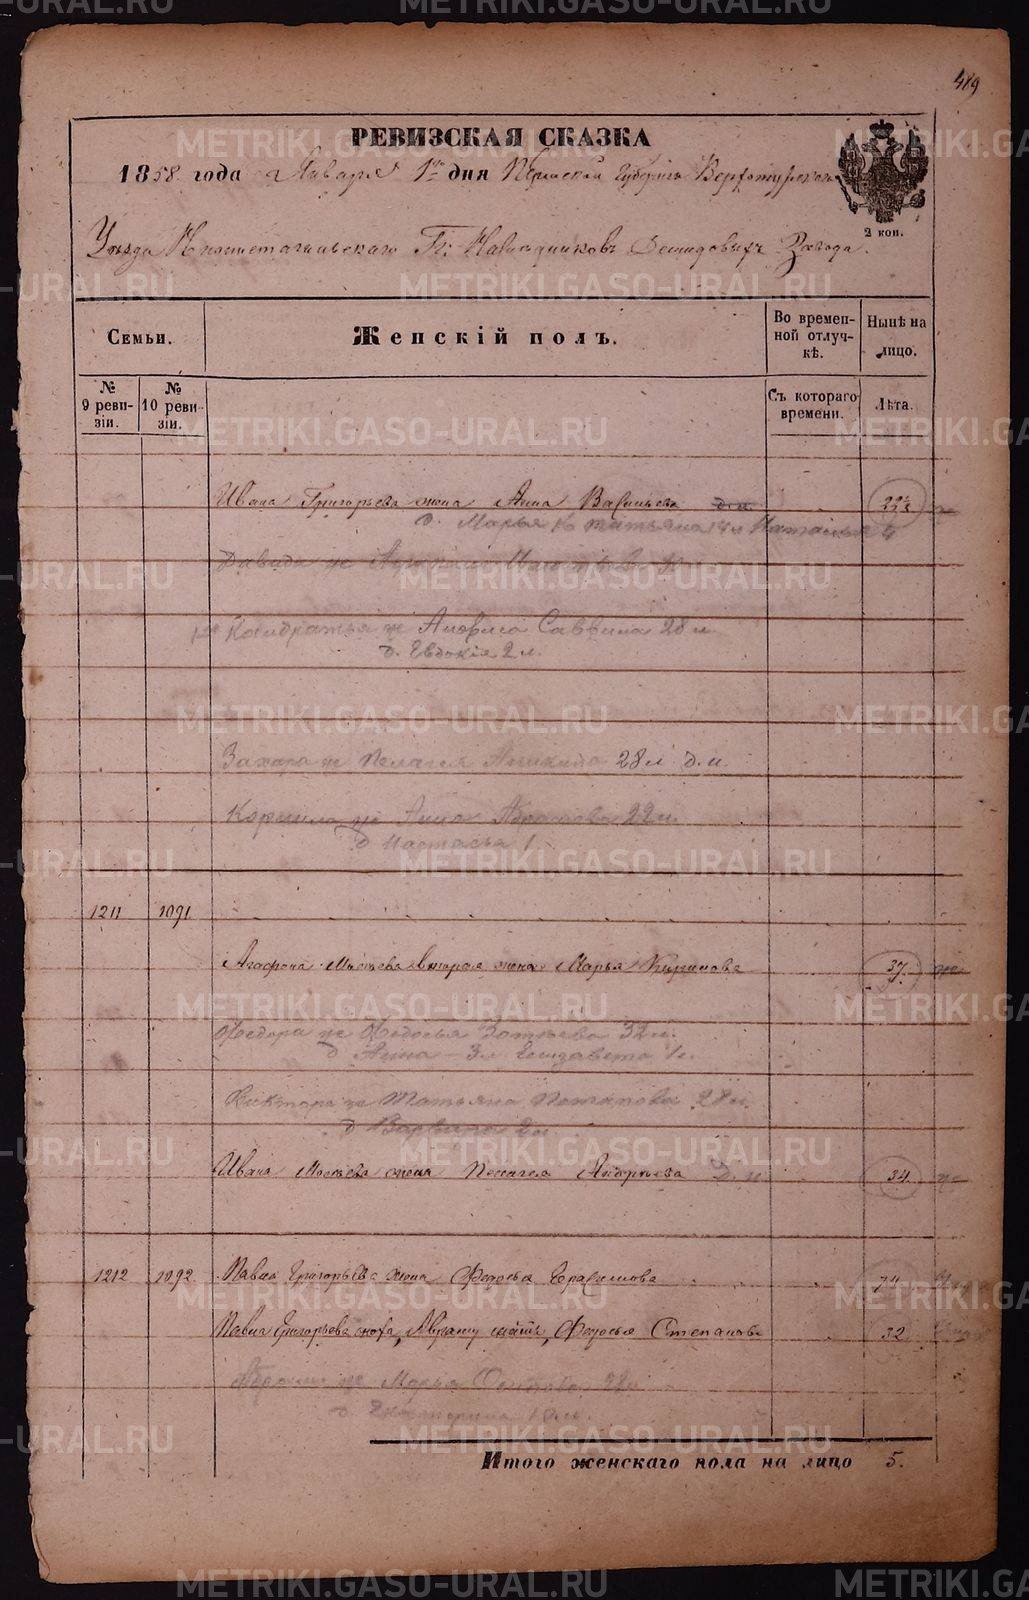 489
РЕВИЗСКАЯ СКАЗКА
1858 года Января 1го дня Пермской Губернiи Верхотурскаго
Уѣзда Нижнетагильскаго Гг. Наслѣдниковъ Демидовыхъ Завода.
2 коп.
Семьи.
Женскiй полъ.
Во времен-
ной отлуч-
кѣ.
Нынѣ на
лицо.
№
9 реви-
зiи.
№
10 реви-
зiи.
Съ котораго
времени.
Лѣта.
Ивана Григорьева жена Анна Васильева
д. Марья Татьяна Наталья
Давида ж
Кондратья ж Анфиса Саввина 28 л
д. Евдокiя 2 л.
Захара ж Пелагея 28 л д. и.
Корнила ж Анна Абрамова 22 л.
д Настасья 1
1211 1091
Агафона Мосѣева вторая жена Марья Кирилова 37.
Федора ж Федосья Зотѣева 32 л.
д Анна - 3 л Елизавета 1 г.
Виктора ж Татьяна Потапова 28 л.
д Варвара 2 л
Ивана Мосѣева жена Пелагея Андрѣева 34.
1212 1092. Павла Григорьева жена Федосья Герасимова 74
Павла Григорьева сноха, Абраму мать, Федосья Степанова 32
Абрама ж Марья 28 л
д. Екатерина
Итого женскаго пола на лицо 5.
METRIKI.GASO-URAL.RU